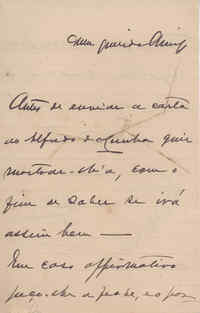 Meu querido Amigo
Antes de enviar a carta
ao Alfredo da Cunha quiz
mostrar-lh'a, com o
fim de saber se irá
assim bem —
Em caso affirmativo
peço-lhe a feche, e o por